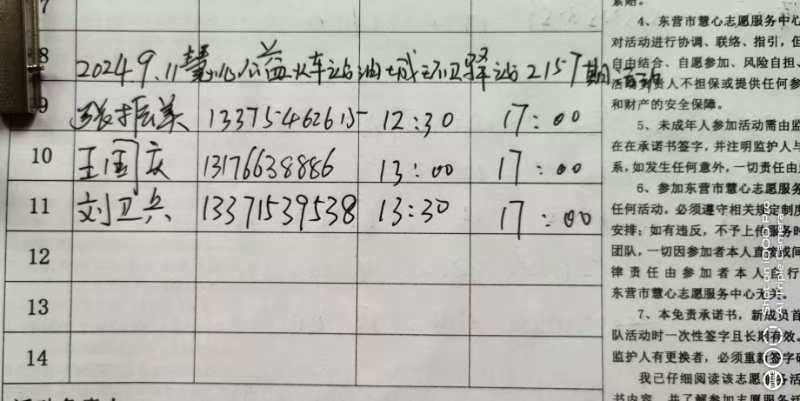 7
8
2024 9.11慧心公益火车站油城环卫驿站2157期
9 张振美 13375462615 12:30 17:00
10 王国庆 13176638886 13:00 17:00
11 刘卫兵 13371539538 13:30 17:00
12
13
14
4、东营市慧心志愿服务中心
对活动进行协调、联络、指引，但
自由结合、自愿参加、风险自担、
责人不担保或提供任何参
和财产的安全保障。
5、未成年人参加活动需由监
在在承诺书签字，并注明监护人与
系，如发生任何意外，一切责任由
6、参加东营市慧心志愿服务
任何活动，必须遵守相关规定制度
安排；如有违反，不予上传服务时
团队，一切因参加者本人直接或间
律责任由参加者本人自行
东营市慧心志愿服务中心无关。
7、本免责承诺书，新成员首
队活动时一次性签字且长期有效。
监护人有更换者，必须重新签字
我已仔细阅读该志愿服务活